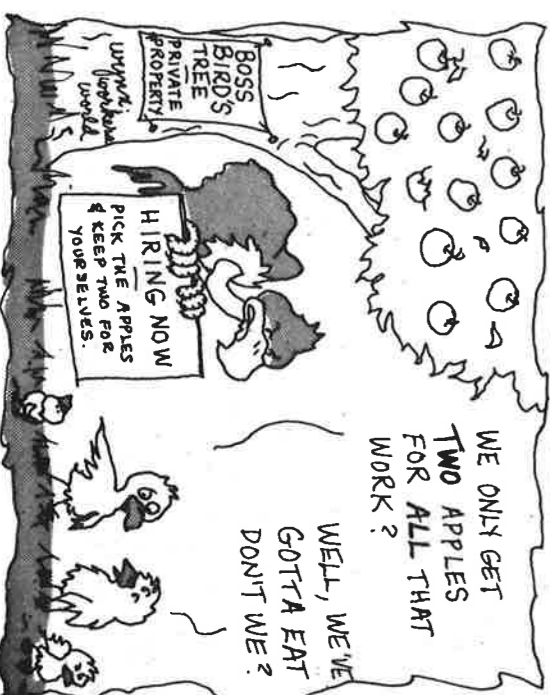 BOSS
BIRD'S
TREE
PRIVATE
PROPERTY
wynx
workers
world
HIRING NOW
PICK THE APPLES
& KEEP TWO FOR
YOURSELVES.
WE ONLY GET
TWO APPLES
FOR ALL THAT
WORK?
WELL, WE'VE
GOTTA EAT
DON'T WE?